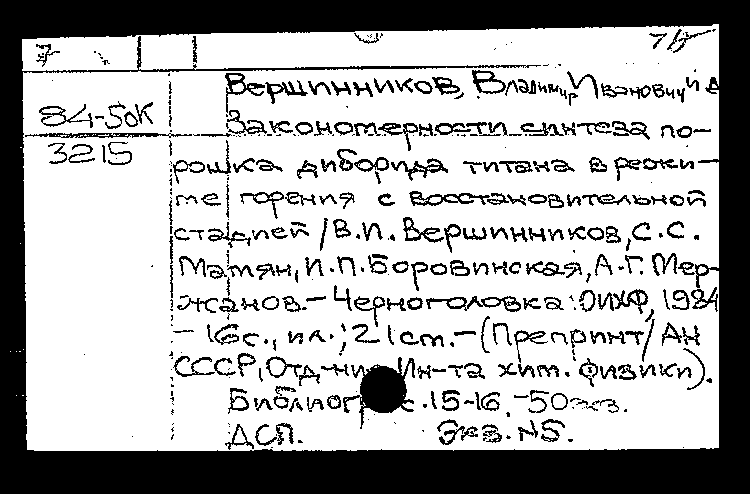 7
7б
Вершинников, Владимир Иванович и д
84-5ОК
Закономерности синтеза по-
3215
рошка диборида титана в режи-
ме горения с восстановительной
стадией / В.И. Вершинников, С.С.
Мамян, И.П. Боровинская, А.Г. Мер-
жанов. – Черноголовка: ОИХФ, 1984
– 16 с., ил.; 21 cm. – (Препринт / АН
СССР, Отд-ние Ин-та хим. физики).
Библиогр. с. 15-16. – 50 экз.
ДСП. Экз. N5.